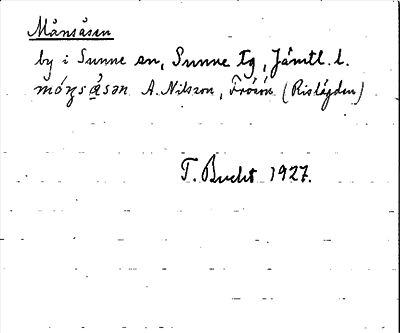 Månsåsen
by i Sunne sn, Sunne tg, Jämtl. l.
A. Nilsson, Frösön (Rislägden)
T. Bucht 1927.